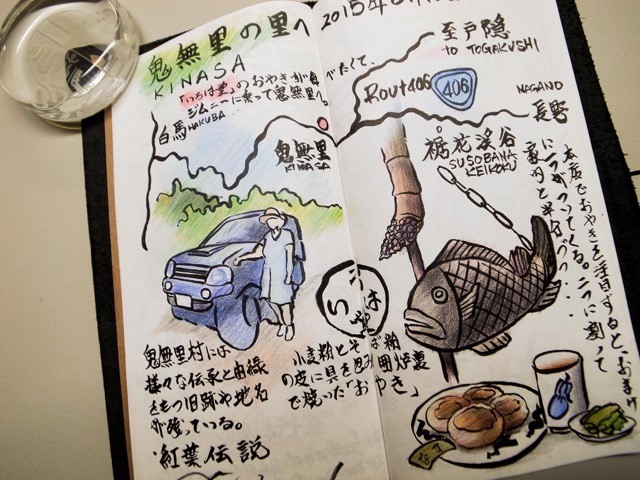 鬼無里の里へ
KINASA
「いろは堂」のおやきが食べたくて、
ジムニーに乗って鬼無里へ。
白馬 HAKUBA
鬼無里
KINASA
2015年
至戸隠
to TOGAKUSHI
Rout406
406
NAGANO
長野
裾花渓谷
SUSOBANA
KEIKOKU
本店でおやきを注目すると、おまけ
に一つがついてくる。二つに割って
家内と半分づつ・・・
いろは堂
鬼無里村には
様々な伝承と由縁
をもつ旧跡や地名
が残っている。
紅葉伝説
小麦粉とそば粉
の皮に具を包み囲炉裏
で焼った「おやき」